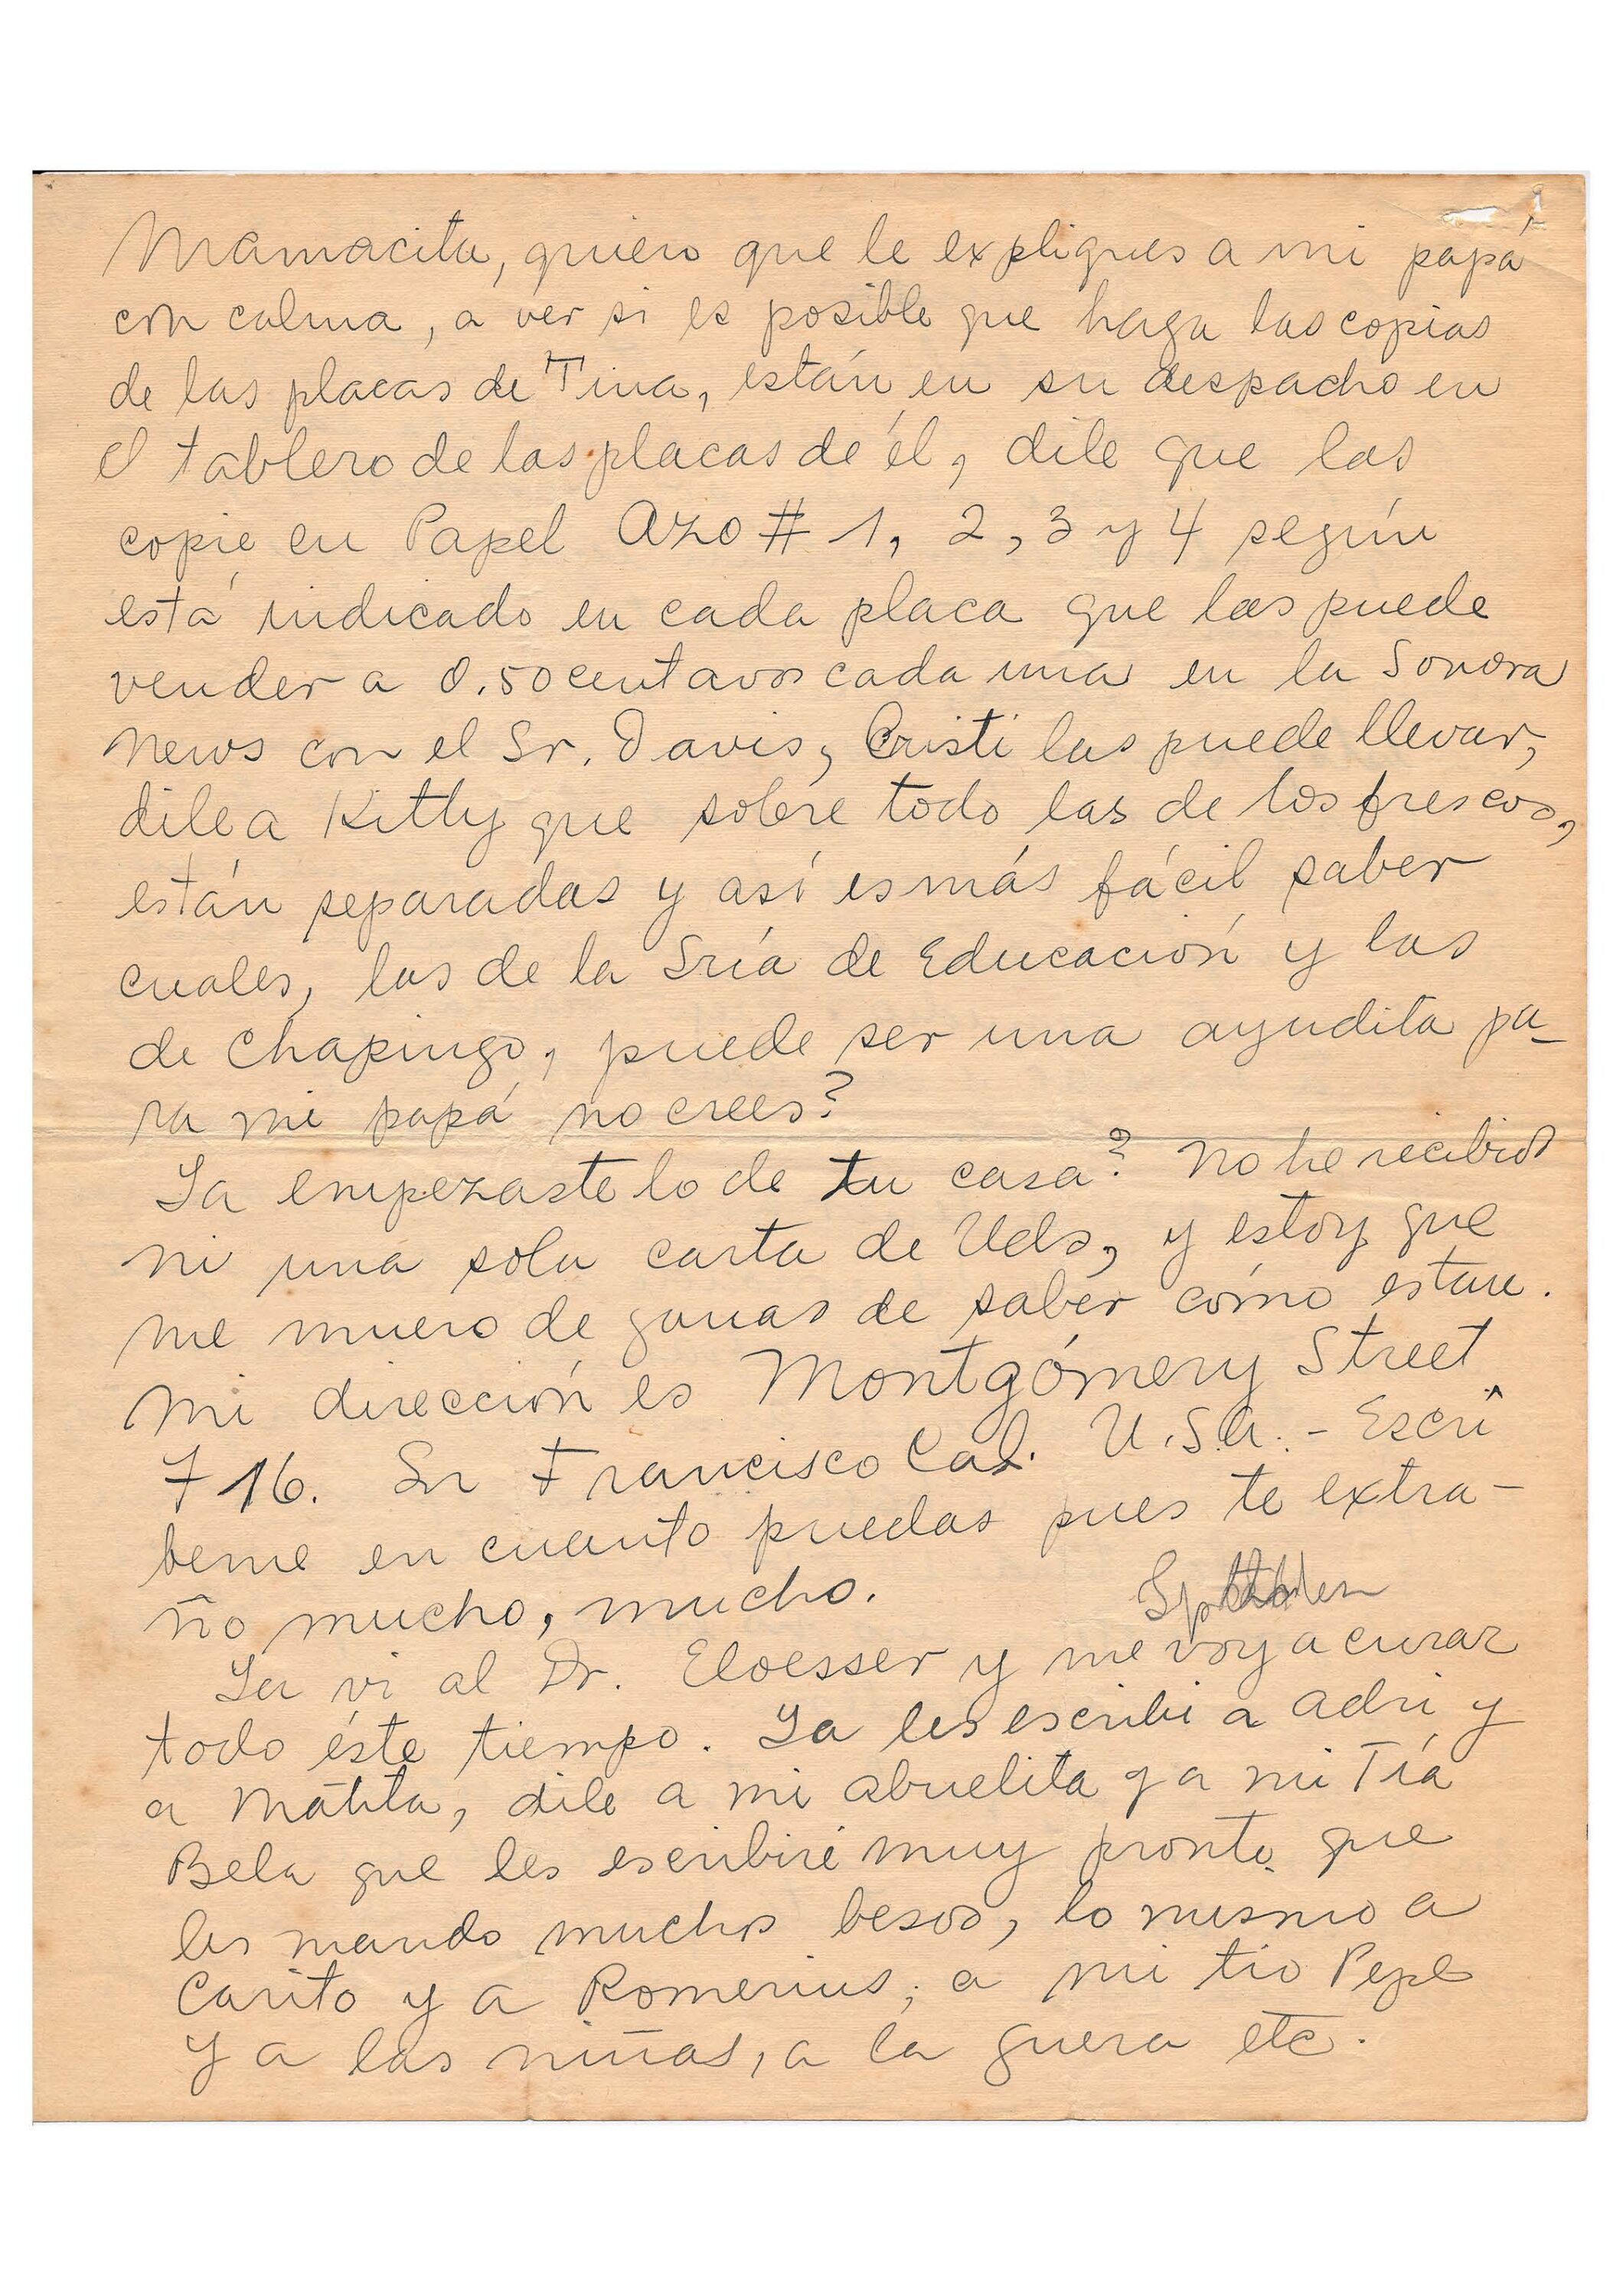 Mamacita, quiero que le expliques a mi papá
con calma, a ver si es posible que haga las copias
de las placas de Tina, están en su despacho en
el tablero de las placas de él, dile que las
copie en Papel Azo # 1, 2, 3 y 4 según
está indicado en cada placa que las puede
vender a 0.50 centavos cada una en la Sonora
News con el Sr. Davis, Cristi las puede llevar,
dile a Kitty que sobre todo las de los frescos,
están separadas y así es más fácil saber
cuales, las de la Sría de Educación y las
de Chapingo, puede ser una ayudita pa-
ra mi papá no crees?
Ya empezaste lo de tu casa? No he recibido
ni una sola carta de Uds, y estoy que
me muero de ganas de saber cómo estan.
Mi dirección es Montgómery Street
716. Sn Francisco Cal. U.S.A. - Escrí
beme en cuanto puedas pues te extra-
ño mucho, mucho.
Ya vi al Dr. Eloesser y me voy a curar
todo éste tiempo. Ya les escribi a Adri y
a Matita, dile a mi abuelita y a mi Tía
Bela que les escribiré muy pronto que
les mando muchos besos, lo mismo a
Carito y a Romerius, a mi tio Pepe
y a las niñas, a la guera etc.